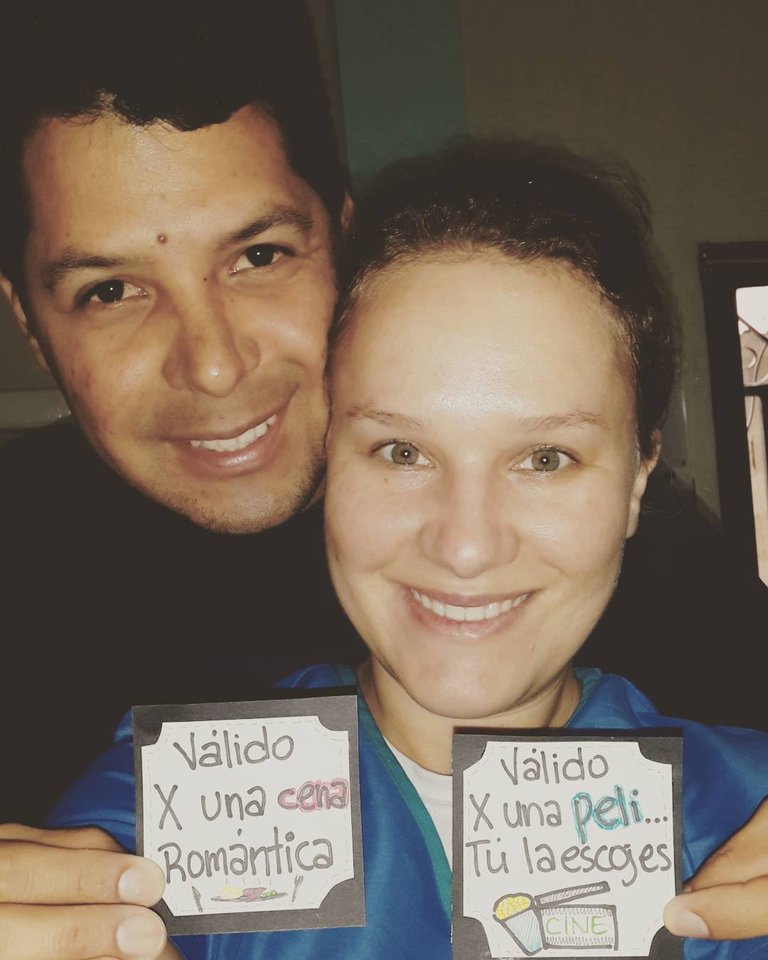 Válido
X una cena
Romántica
Válido
X una peli...
Tú la escojes
CINE